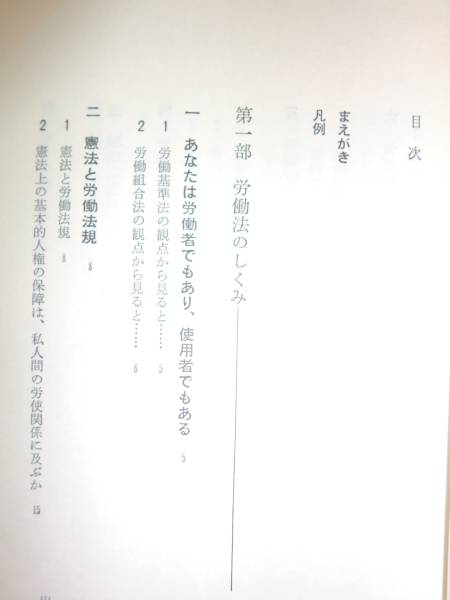 目次
まえがき
凡例
第一部 労働法のしくみ
一 あなたは労働者でもあり、使用者でもある 5
1 労働基準法の観点から見ると…… 5
2 労働組合法の観点から見ると…… 6
二 憲法と労働法規 8
1 憲法と労働法規 8
2 憲法上の基本的人権の保障は、私人間の労使関係に及ぶか 15